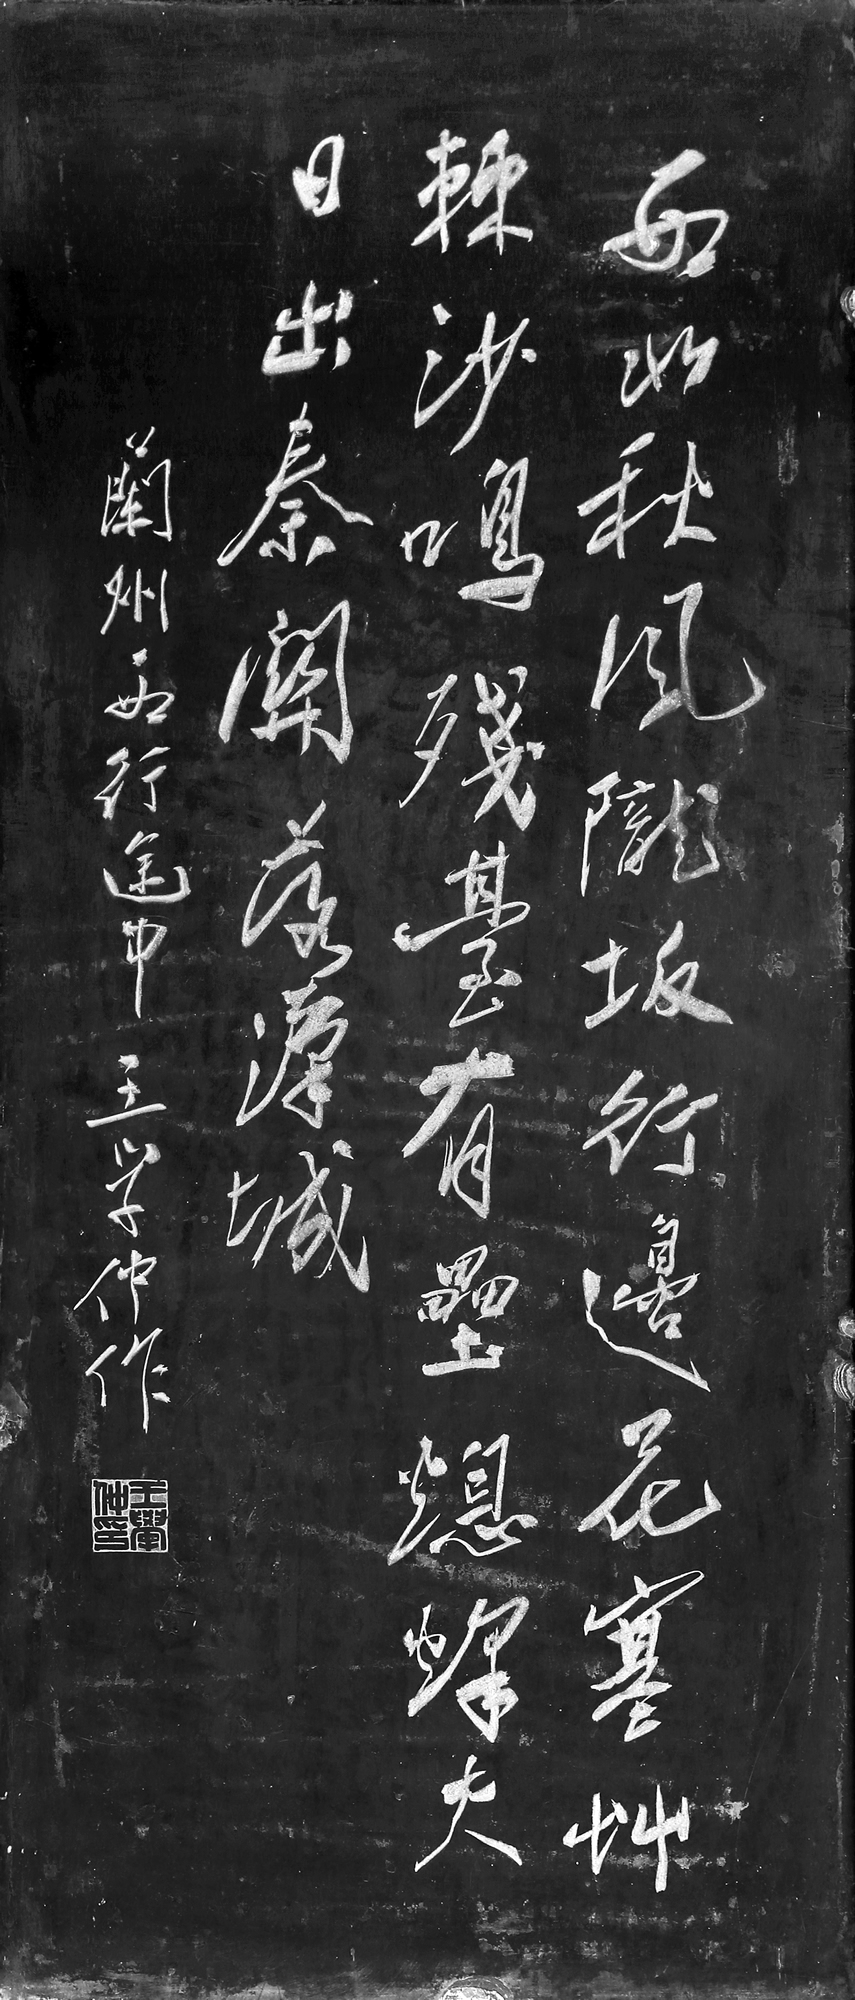 西北秋風隴坂行邊花塞艸
棘沙鳴殘臺有壘熄烽火
日出秦關落漢城
蘭州西行途中 王学仲作
王學仲印